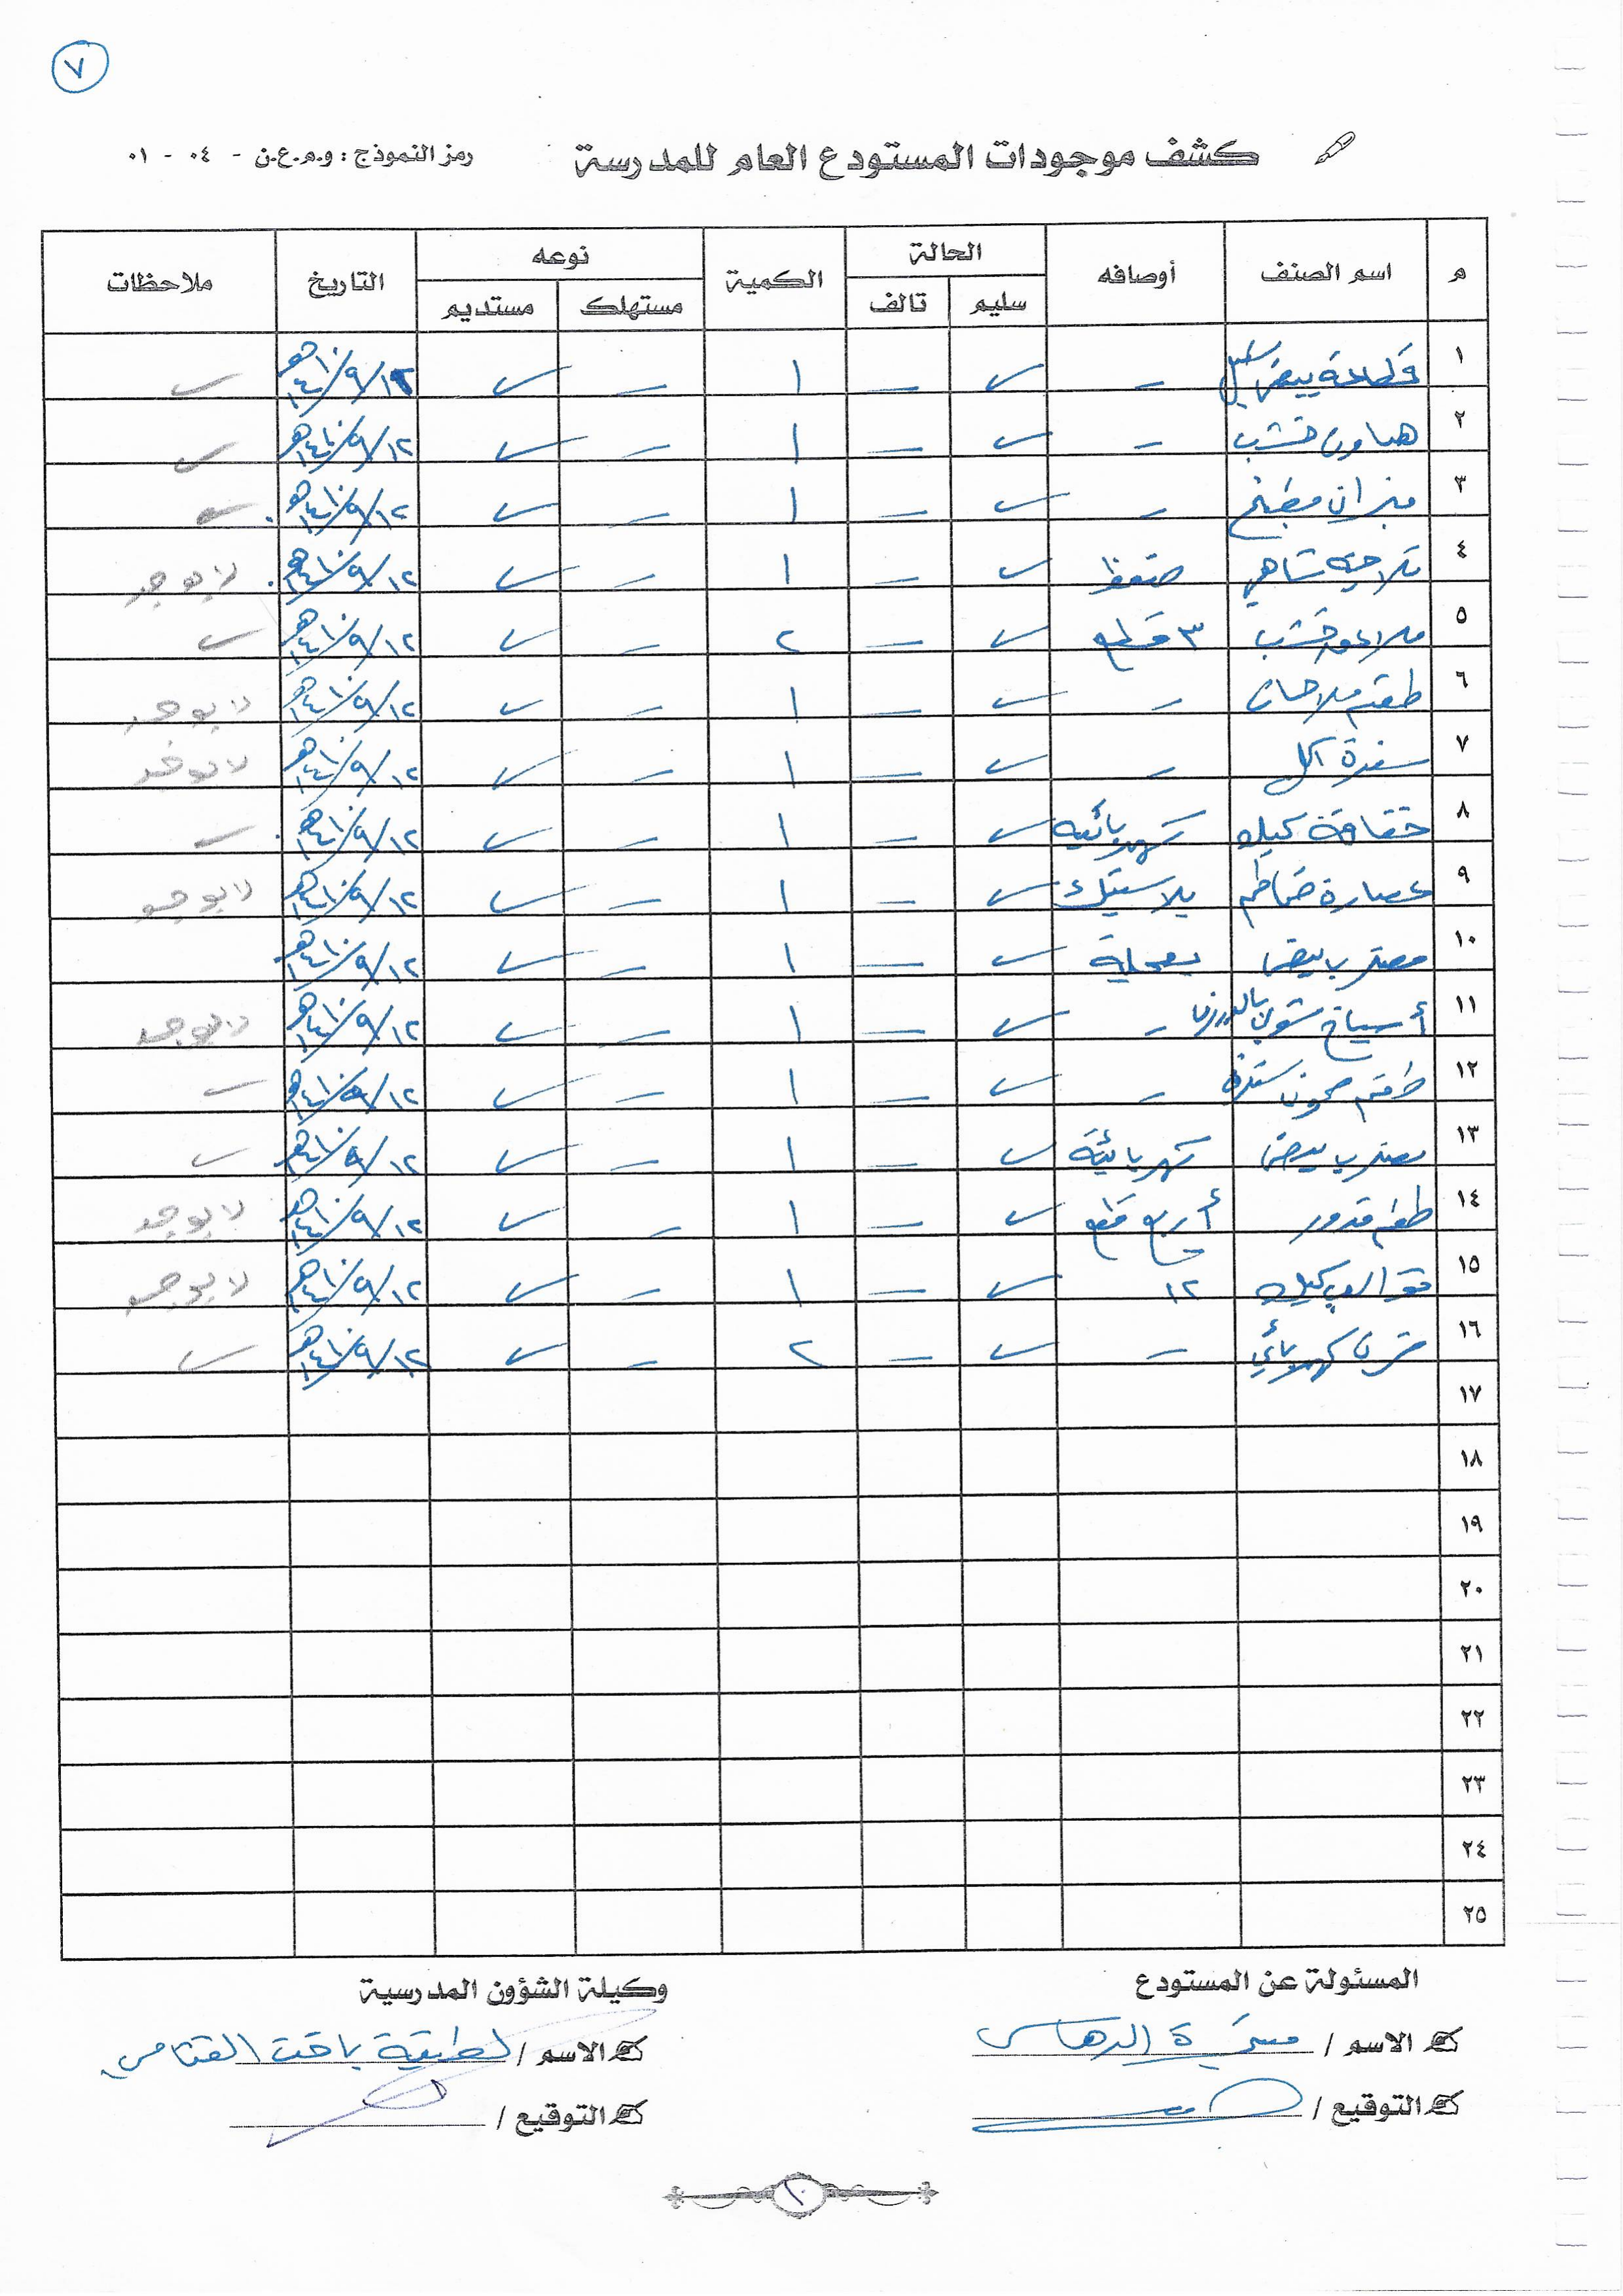 ٧
كشف موجودات المستودع العام للمدرسة
رمز النموذج : و.م.ع.ن - ٠٤ - ٠١
م اسم الصنف أوصافه الحالة الكمية نوعه التاريخ ملاحظات
سليم تالف مستهلك مستديم
١ قطاعة بيض ستيل - ✓ - ١ - ✓ ١٢/٩/١٤١٠هـ ✓
٢ هاون خشب - ✓ - ١ - ✓ ١٢/٩/١٤١٠هـ ✓
٣ ميزان مطبخ - ✓ - ١ - ✓ ١٢/٩/١٤١٠هـ ✓
٤ ثلاجة شاهي ضغط ✓ - ١ - ✓ ١٢/٩/١٤١٠هـ لا يوجد
٥ ملاعق خشب ٣ قطع ✓ - ٢ - ✓ ١٢/٩/١٤١٠هـ ✓
٦ طقم ملاحات - ✓ - ١ - ✓ ١٢/٩/١٤١٠هـ لا يوجد
٧ سفرة اكل - ✓ - ١ - ✓ ١٢/٩/١٤١٠هـ لا يوجد
٨ خفاقة كيك كهربائية ✓ - ١ - ✓ ١٢/٩/١٤١٠هـ ✓
٩ عصارة طماطم بلاستيك ✓ - ١ - ✓ ١٢/٩/١٤١٠هـ لا يوجد
١٠ مضرب بيض بعجلة ✓ - ١ - ✓ ١٢/٩/١٤١٠هـ
١١ أسياخ شوي - ✓ - ١ - ✓ ١٢/٩/١٤١٠هـ لا يوجد
١٢ طقم صحون - ✓ - ١ - ✓ ١٢/٩/١٤١٠هـ ✓
١٣ مضرب بيض كهربائية ✓ - ١ - ✓ ١٢/٩/١٤١٠هـ ✓
١٤ طقم قدور أربع قطع ✓ - ١ - ✓ ١٢/٩/١٤١٠هـ لا يوجد
١٥ قوالب كيك ١٢ ✓ - ١ - ✓ ١٢/٩/١٤١٠هـ لا يوجد
١٦ فرن كهربائي - ✓ - ٢ - ✓ ١٢/٩/١٤١٠هـ ✓
١٧
١٨
١٩
٢٠
٢١
٢٢
٢٣
٢٤
٢٥
المسئولة عن المستودع
الاسم /
التوقيع /
وكيلة الشؤون المدرسية
الاسم / لطيفة
التوقيع /
١٠